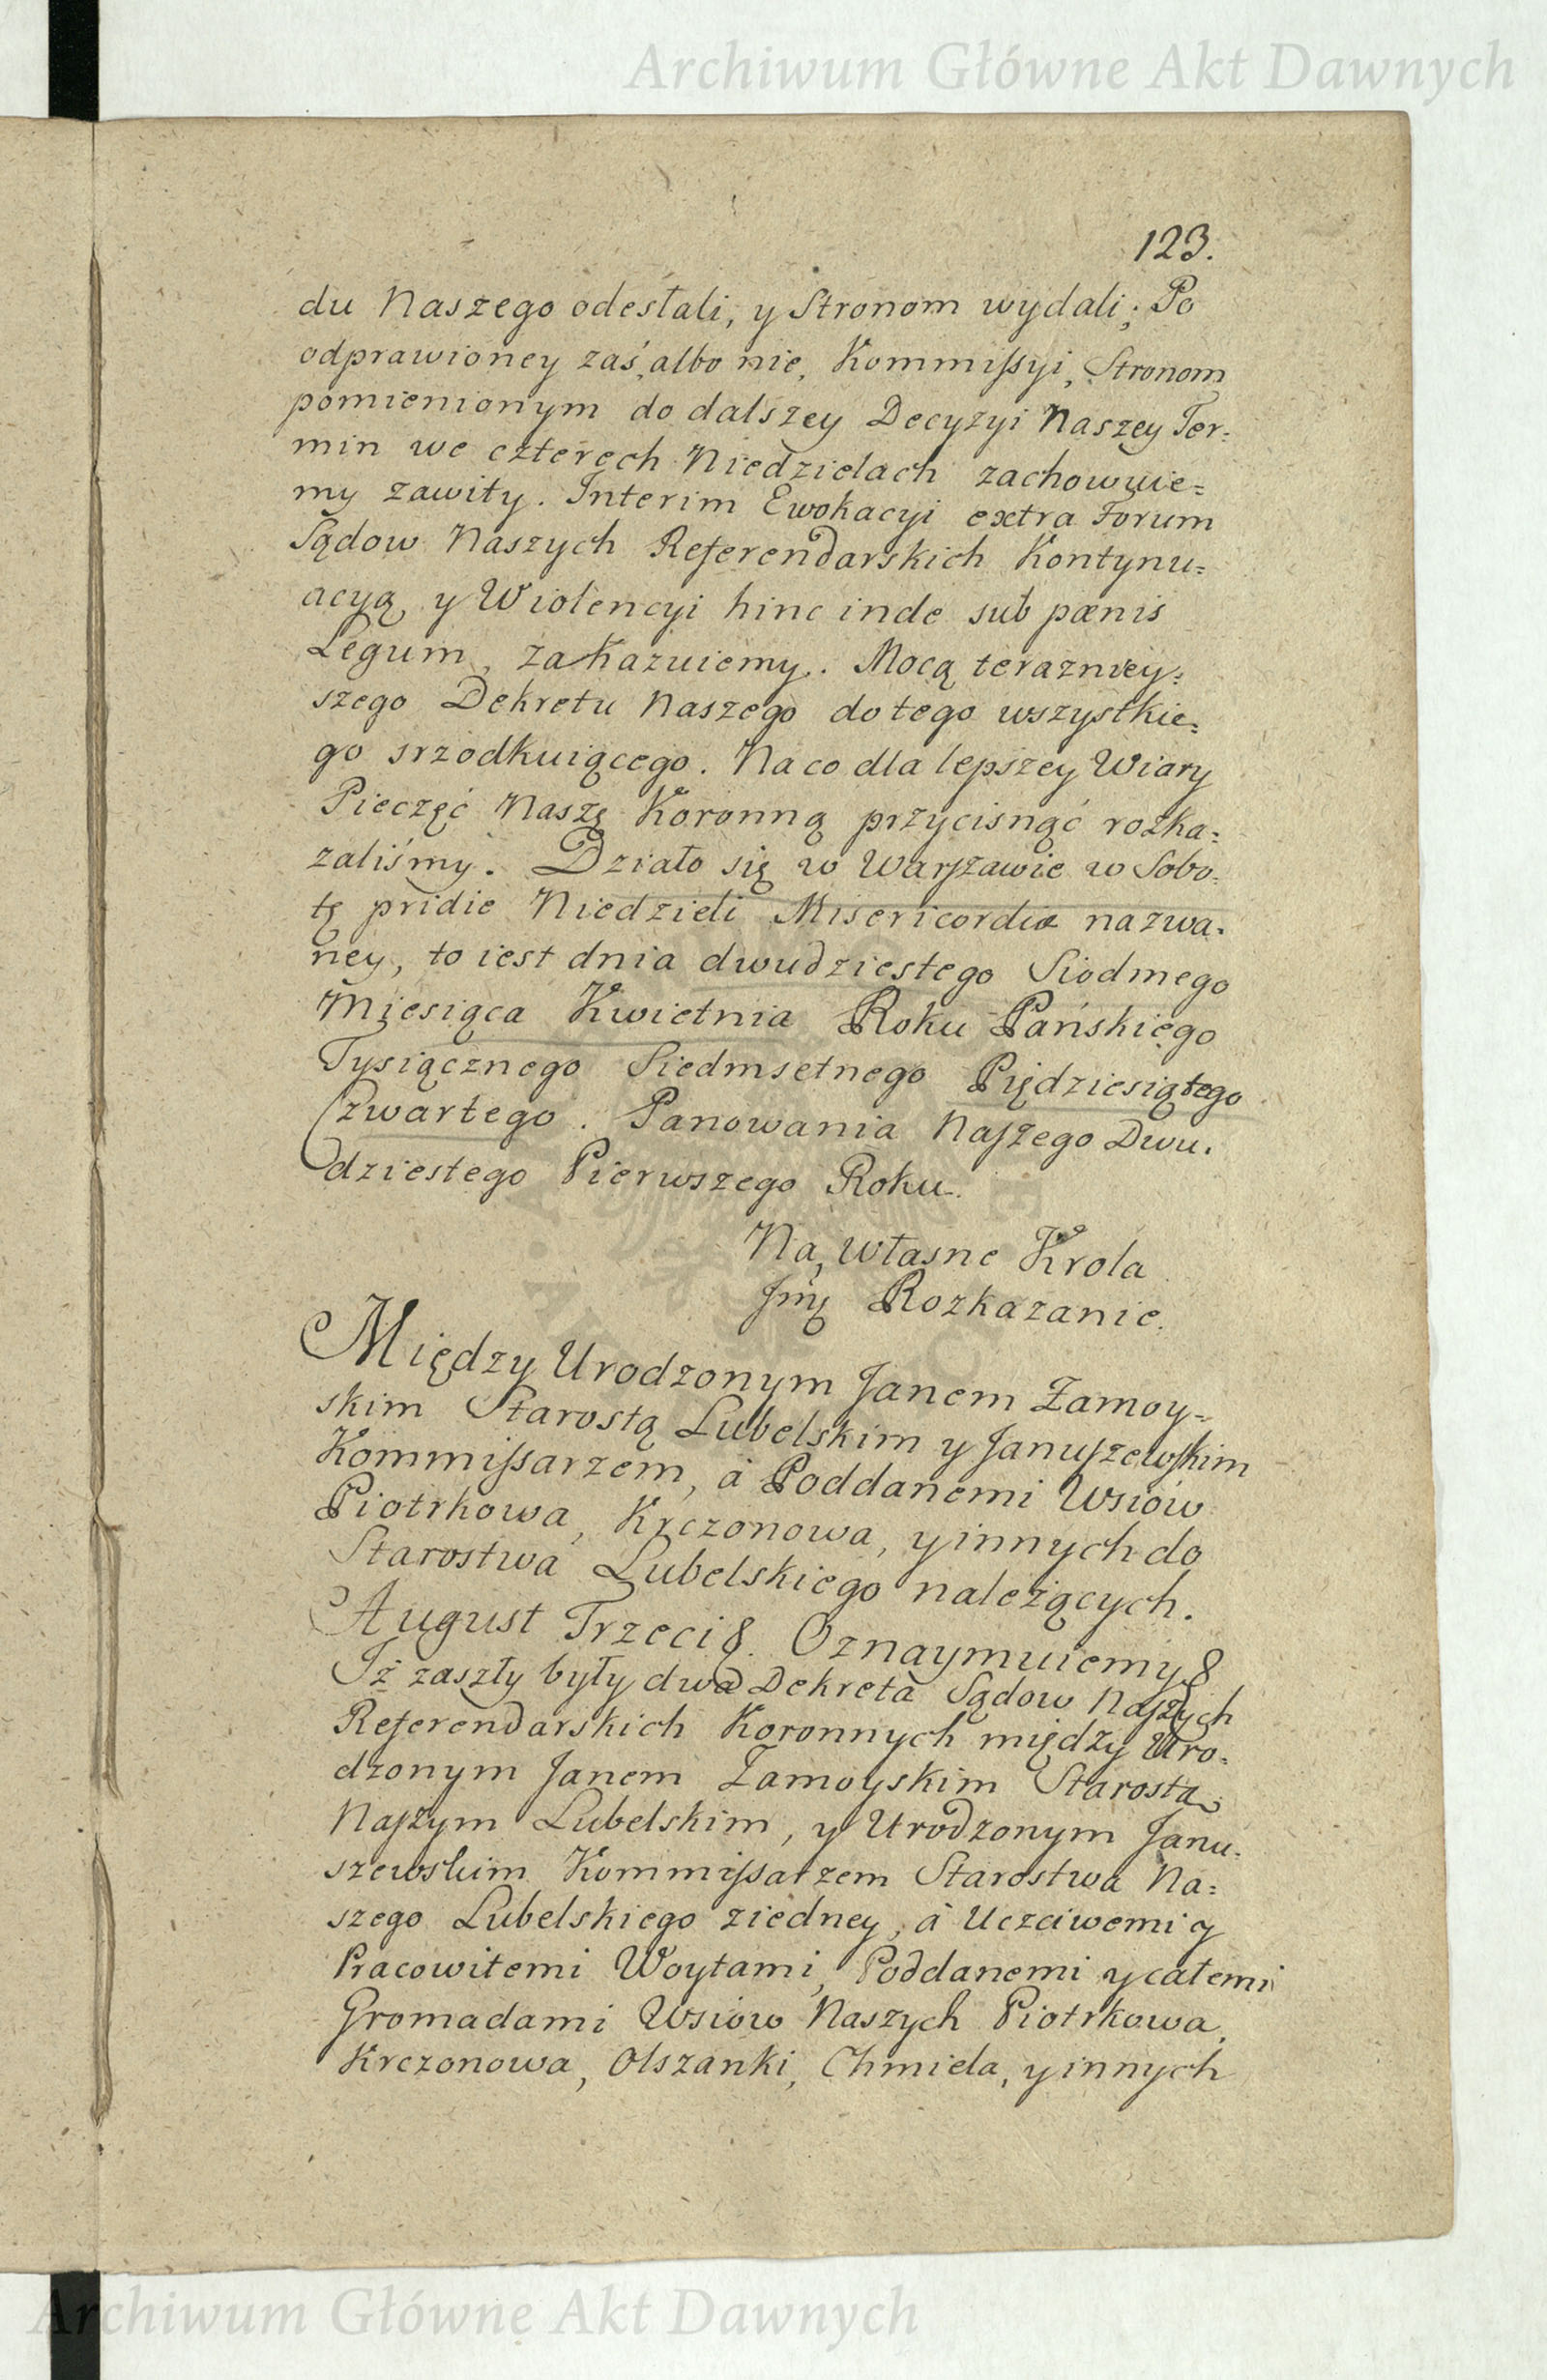 Archiwum Główne Akt Dawnych
123.
du Naszego odesłali, y Stronom wydali; Po
odprawioney zaś, albo nie, Kommissyi, Stronom
pomienionym do dalszey Decyzyi Naszey Ter=
min we czterech Niedzielach zachowuie=
my zawity. Interim Ewokacyi extra Forum
Sądow Naszych Referendarskich Kontynu=
acyą, y Wiolencyi hinc inde sub pænis
Legum, zakazuiemy. Mocą terazniey=
szego Dekretu Naszego do tego wszystkie=
go srzodkuiącego. Na co dla lepszey Wiary
Pieczęć Naszą Koronną przycisnąć rozka=
zaliśmy. Działo się w Warszawie w Sobo=
tę pridie Niedzieli Misericordiæ nazwa=
ney, to iest dnia dwudziestego Siodmego
Miesiąca Kwietnia Roku Pańskiego
Tysiącznego Siedmsetnego Piędziesiątego
Czwartego. Panowania Naszego Dwu=
dziestego Pierwszego Roku.
Na własne Krola
Jmę Rozkazanie.
Między Urodzonym Janem Zamoy=
skim Starostą Lubelskim y Januszewskim
Kommissarzem, à Poddanemi Wsiow
Piotrkowa, Krczonowa, y innych do
Starostwa Lubelskiego należących.
August Trzeci &. Oznaymuiemy &
Iż zaszły były dwa Dekreta Sądow Naszych
Referendarskich Koronnych między Uro=
dzonym Janem Zamoyskim Starostą
Naszym Lubelskim, y Urodzonym Janu=
szewskim Kommissarzem Starostwa Na=
szego Lubelskiego ziedney, à Uczciwemi y
Pracowitemi Woytami, Poddanemi y całemi
Gromadami Wsiow Naszych Piotrkowa,
Krczonowa, Olszanki, Chmiela, y innych
Archiwum Główne Akt Dawnych